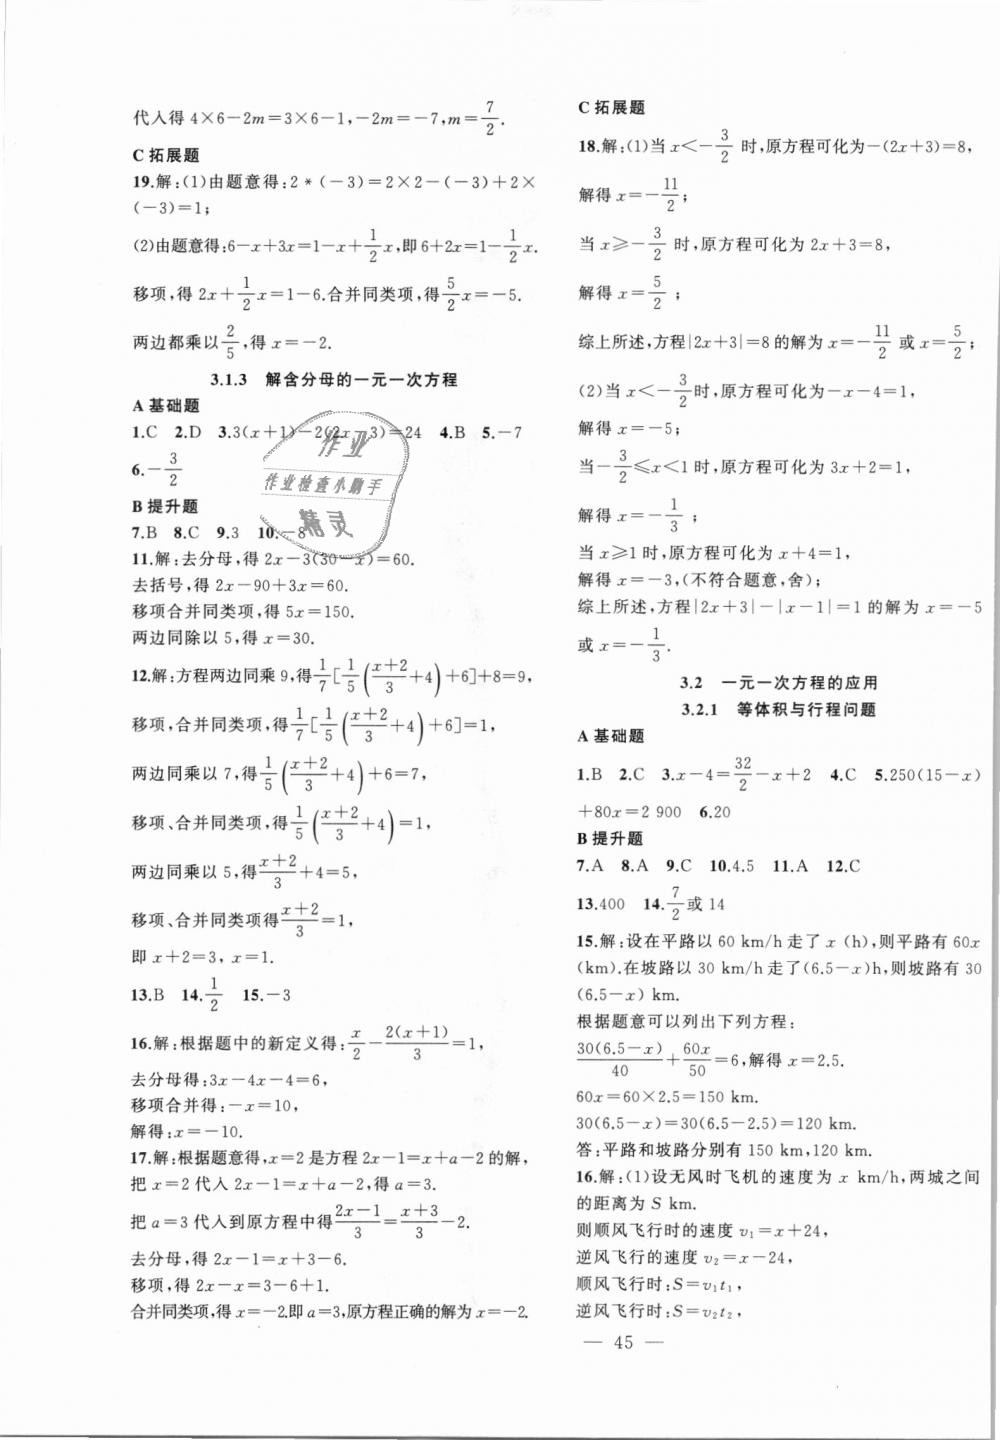 代入得 4×6－2m＝3×6－1,－2m＝－7,m＝7/2.
C 拓展题
19.解:(1)由题意得:2*(－3)＝2×2－(－3)＋2×
(－3)＝1;
(2)由题意得:6－x＋3x＝1－x＋1/2x,即 6＋2x＝1－1/2x.
移项,得 2x＋1/2x＝1－6.合并同类项,得5/2x＝－5.
两边都乘以2/5,得 x＝－2.
3.1.3 解含分母的一元一次方程
A 基础题
1.C 2.D 3.3(x＋1)－2(2x－3)＝24 4.B 5.－7
6.－3/2
B 提升题
7.B 8.C 9.3 10.－8
11.解:去分母,得 2x－3(30－x)＝60.
去括号,得 2x－90＋3x＝60.
移项合并同类项,得 5x＝150.
两边同除以 5,得 x＝30.
12.解:方程两边同乘 9,得1/7[1/5((x＋2)/3＋4)＋6]＋8＝9,
移项,合并同类项,得1/7[1/5((x＋2)/3＋4)＋6]＝1,
两边同乘以 7,得1/5((x＋2)/3＋4)＋6＝7,
移项、合并同类项,得1/5((x＋2)/3＋4)＝1,
两边同乘以 5,得(x＋2)/3＋4＝5,
移项、合并同类项得(x＋2)/3＝1,
即 x＋2＝3, x＝1.
13.B 14.1/2 15.－3
16.解:根据题中的新定义得:x/2－2(x＋1)/3＝1,
去分母得:3x－4x－4＝6,
移项合并得:－x＝10,
解得:x＝－10.
17.解:根据题意得,x＝2 是方程 2x－1＝x＋a－2 的解,
把 x＝2 代入 2x－1＝x＋a－2,得 a＝3.
把 a＝3 代入到原方程中得(2x－1)/3＝(x＋3)/3－2.
去分母,得 2x－1＝x＋3－6.
移项,得 2x－x＝3－6＋1.
合并同类项,得 x＝－2.即 a＝3,原方程正确的解为 x＝－2.
作业
作业检查小助手
精灵
C 拓展题
18.解:(1)当 x＜－3/2 时,原方程可化为－(2x＋3)＝8,
解得 x＝－11/2;
当 x≥－3/2 时,原方程可化为 2x＋3＝8,
解得 x＝5/2;
综上所述,方程|2x＋3|＝8 的解为 x＝－11/2 或 x＝5/2;
(2)当 x＜－3/2时,原方程可化为－x－4＝1,
解得 x＝－5;
当－3/2≤x＜1 时,原方程可化为 3x＋2＝1,
解得 x＝－1/3;
当 x≥1 时,原方程可化为 x＋4＝1,
解得 x＝－3,(不符合题意,舍);
综上所述,方程|2x＋3|－|x－1|＝1 的解为 x＝－5
或 x＝－1/3.
3.2 一元一次方程的应用
3.2.1 等体积与行程问题
A 基础题
1.B 2.C 3.x－4＝32/2－x＋2 4.C 5.250(15－x)
＋80x＝2 900 6.20
B 提升题
7.A 8.A 9.C 10.4.5 11.A 12.C
13.400 14.7/2或 14
15.解:设在平路以 60 km/h 走了 x (h),则平路有 60x
(km).在坡路以 30 km/h 走了(6.5－x)h,则坡路有 30
(6.5－x) km.
根据题意可以列出下列方程:
30(6.5－x)/40＋60x/50＝6,解得 x＝2.5.
60x＝60×2.5＝150 km.
30(6.5－x)＝30(6.5－2.5)＝120 km.
答:平路和坡路分别有 150 km,120 km.
16.解:(1)设无风时飞机的速度为 x km/h,两城之间
的距离为 S km.
则顺风飞行时的速度 v₁＝x＋24,
逆风飞行的速度 v₂＝x－24,
顺风飞行时:S＝v₁t₁,
逆风飞行时:S＝v₂t₂,
— 45 —